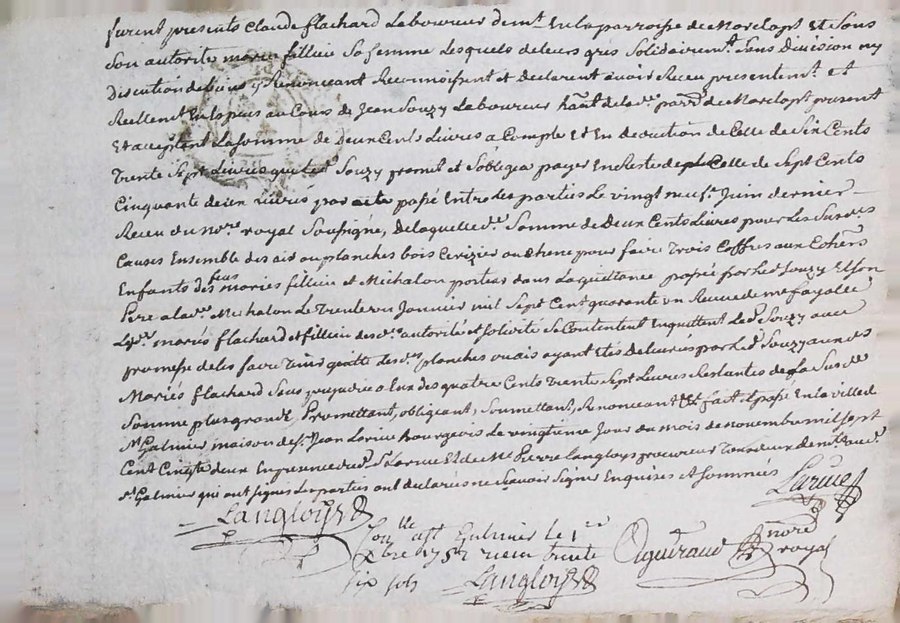 furent presents Claude flachard Laboureur demt. En la parroisse de Marclopt Et Sous
Son autorité marie filliui Sa femme Lesquels de leurs gres Solidairemt. Sans Division ny
Discution de biens y Renonceant Reconnoissent et declarent avoir Receu presentemt. et
Reellemt. En la piece au Cours de Jean Souzy Laboureur habt. de lad. parr. de Marclopt present
Et acceptant La somme de Deux Cents Livres a Compte Et En deduction de Celle de Six Cents
Trente Sept Livres que led. Souzy promet et Soblige a payer En Reste de Celle de Sept Cents
Cinquante deux Livres par acte passé Entre Les parties Le vingt neuf. Juin dernier
Receu du nore. royal Soussigné, De laquelle de. Somme de Deux Cents Livres pour Les Susdes
Causes Ensemble des ais ou planches bois Cerizier ou Chene pour faire Trois Coffres aux
Enfants des feus mariés filliui et Michalon portés dans La quittance passée par led. Souzy Et son
Pere a lad. Michalon Le Trente un Janvier mil Sept Cent quarante un Receue de me fayolle
Lesd. mariés flachard et filliui des de. autorité et Se Contentent En quittent Led. Souzy avec
promesse de les faire Tenir quitte des des. planches ayant Etés delivrés par Led. Souzy auxds
Mariés flachard Sans prejudice a Eux des quatre Cents Trente Sept Livres Restantes de la Susde.
Somme plus grande, Promettant, obligeant, Soumettant, Renonceant Et fait Et passé En la ville de
St. Galmier maison de Sr. Jean Larue bourgeois Le vingtieme Jour du mois de novembre mil sept
Cent Cinqte deux En presence dud. Sr. Larue Et de Me. Pierre Langloys procureur
St. Galmier qui ont signés Les parties ont declarées ne Scavoir Signer Enquises et Sommées
Larue
Langloys
Conlle. a St. Galmier le 1er
xbre 1752 recu trente
six sols
Langloys
nore.
royal